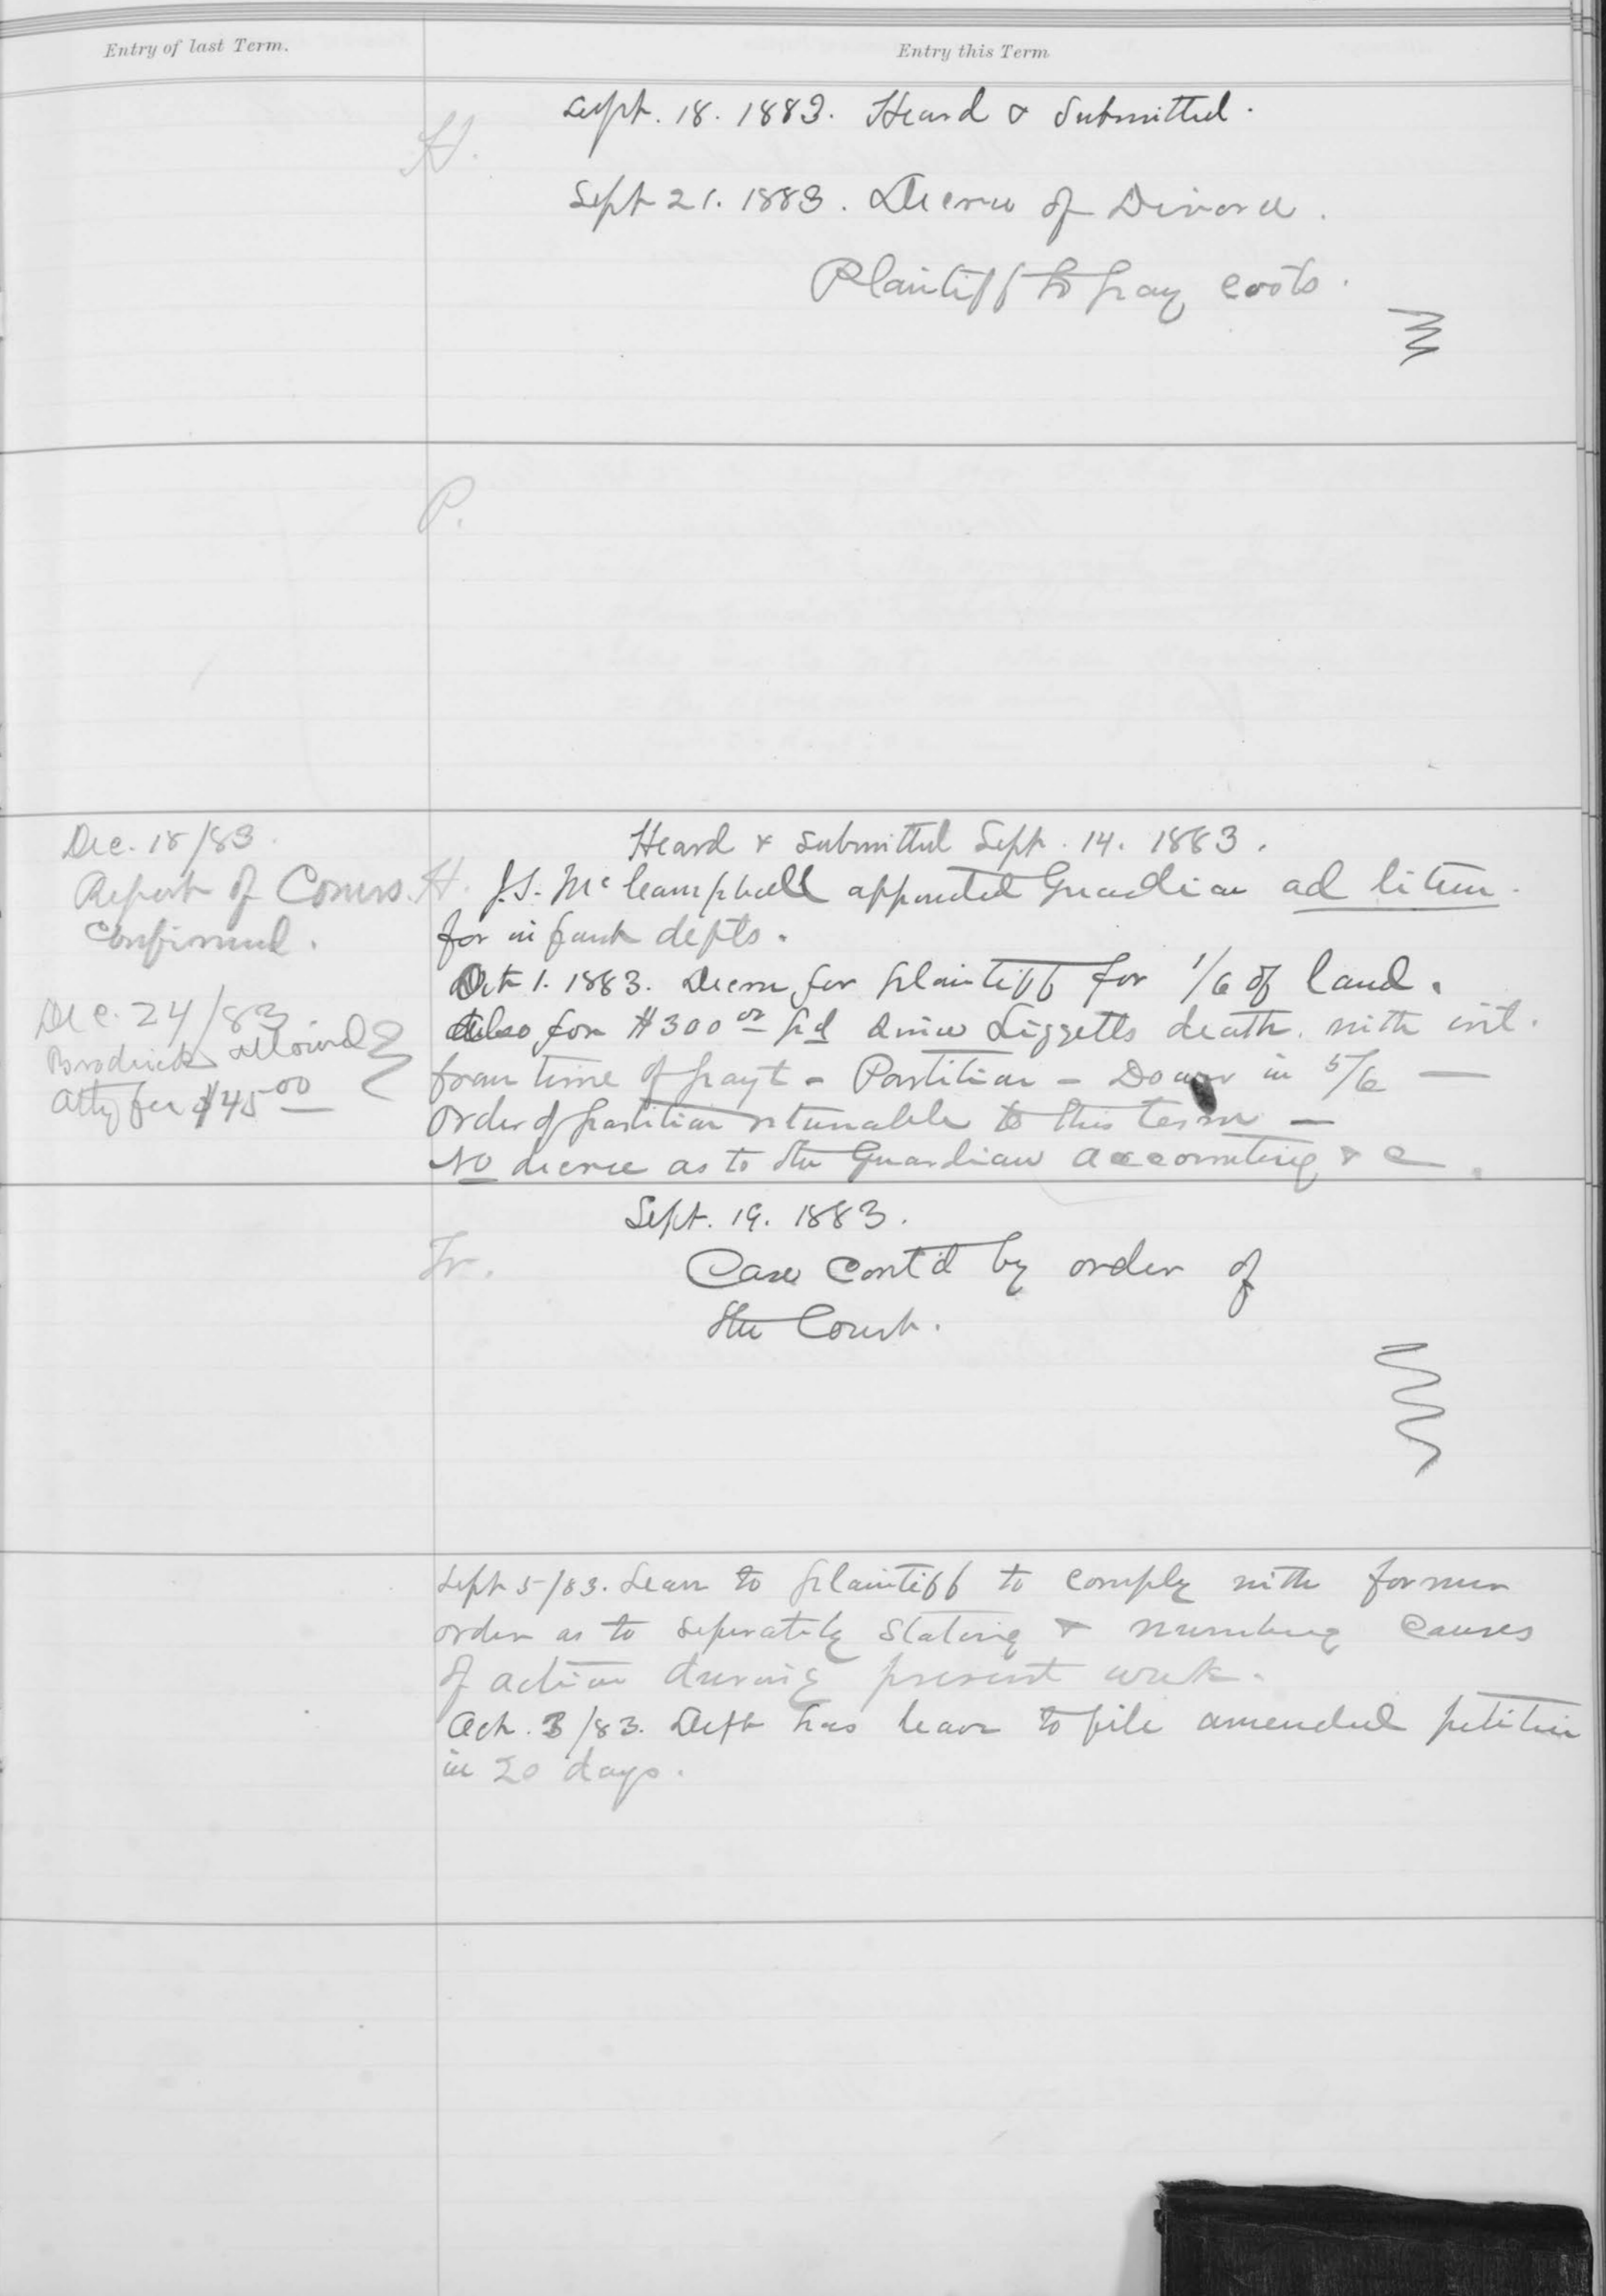 Entry of last Term.
Entry this Term
H.
Sept. 18. 1883. Heard & Submitted.
Sept 21. 1883. Decree of Divorce.
Plaintiff to pay costs.
P.
Dec. 18/83.
Report of Comrs.
Confirmed.
Dec. 24/83
Brodrick allowed
Atty fee $45 00
H.
Heard & submitted Sept. 14. 1883.
J.S. McCampbell appointed Guardian ad litem.
for infant defts.
Oct 1. 1883. Decree for plaintiff for 1/6 of land.
Also for $300 00 pd since Liggetts death. with int.
from time of payt - Partition - Dower in 5/6 —
Order of partition returnable to this term —
No decree as to the Guardian accounting & c.
Fr.
Sept. 19. 1883.
Case Cont'd by order of
the Court.
Sept 5/83. Leave to plaintiff to comply with former
order as to seperately stating & numbering causes
of action during present week.
Oct. 3/83. Deft has leave to file amended petition
in 20 days.